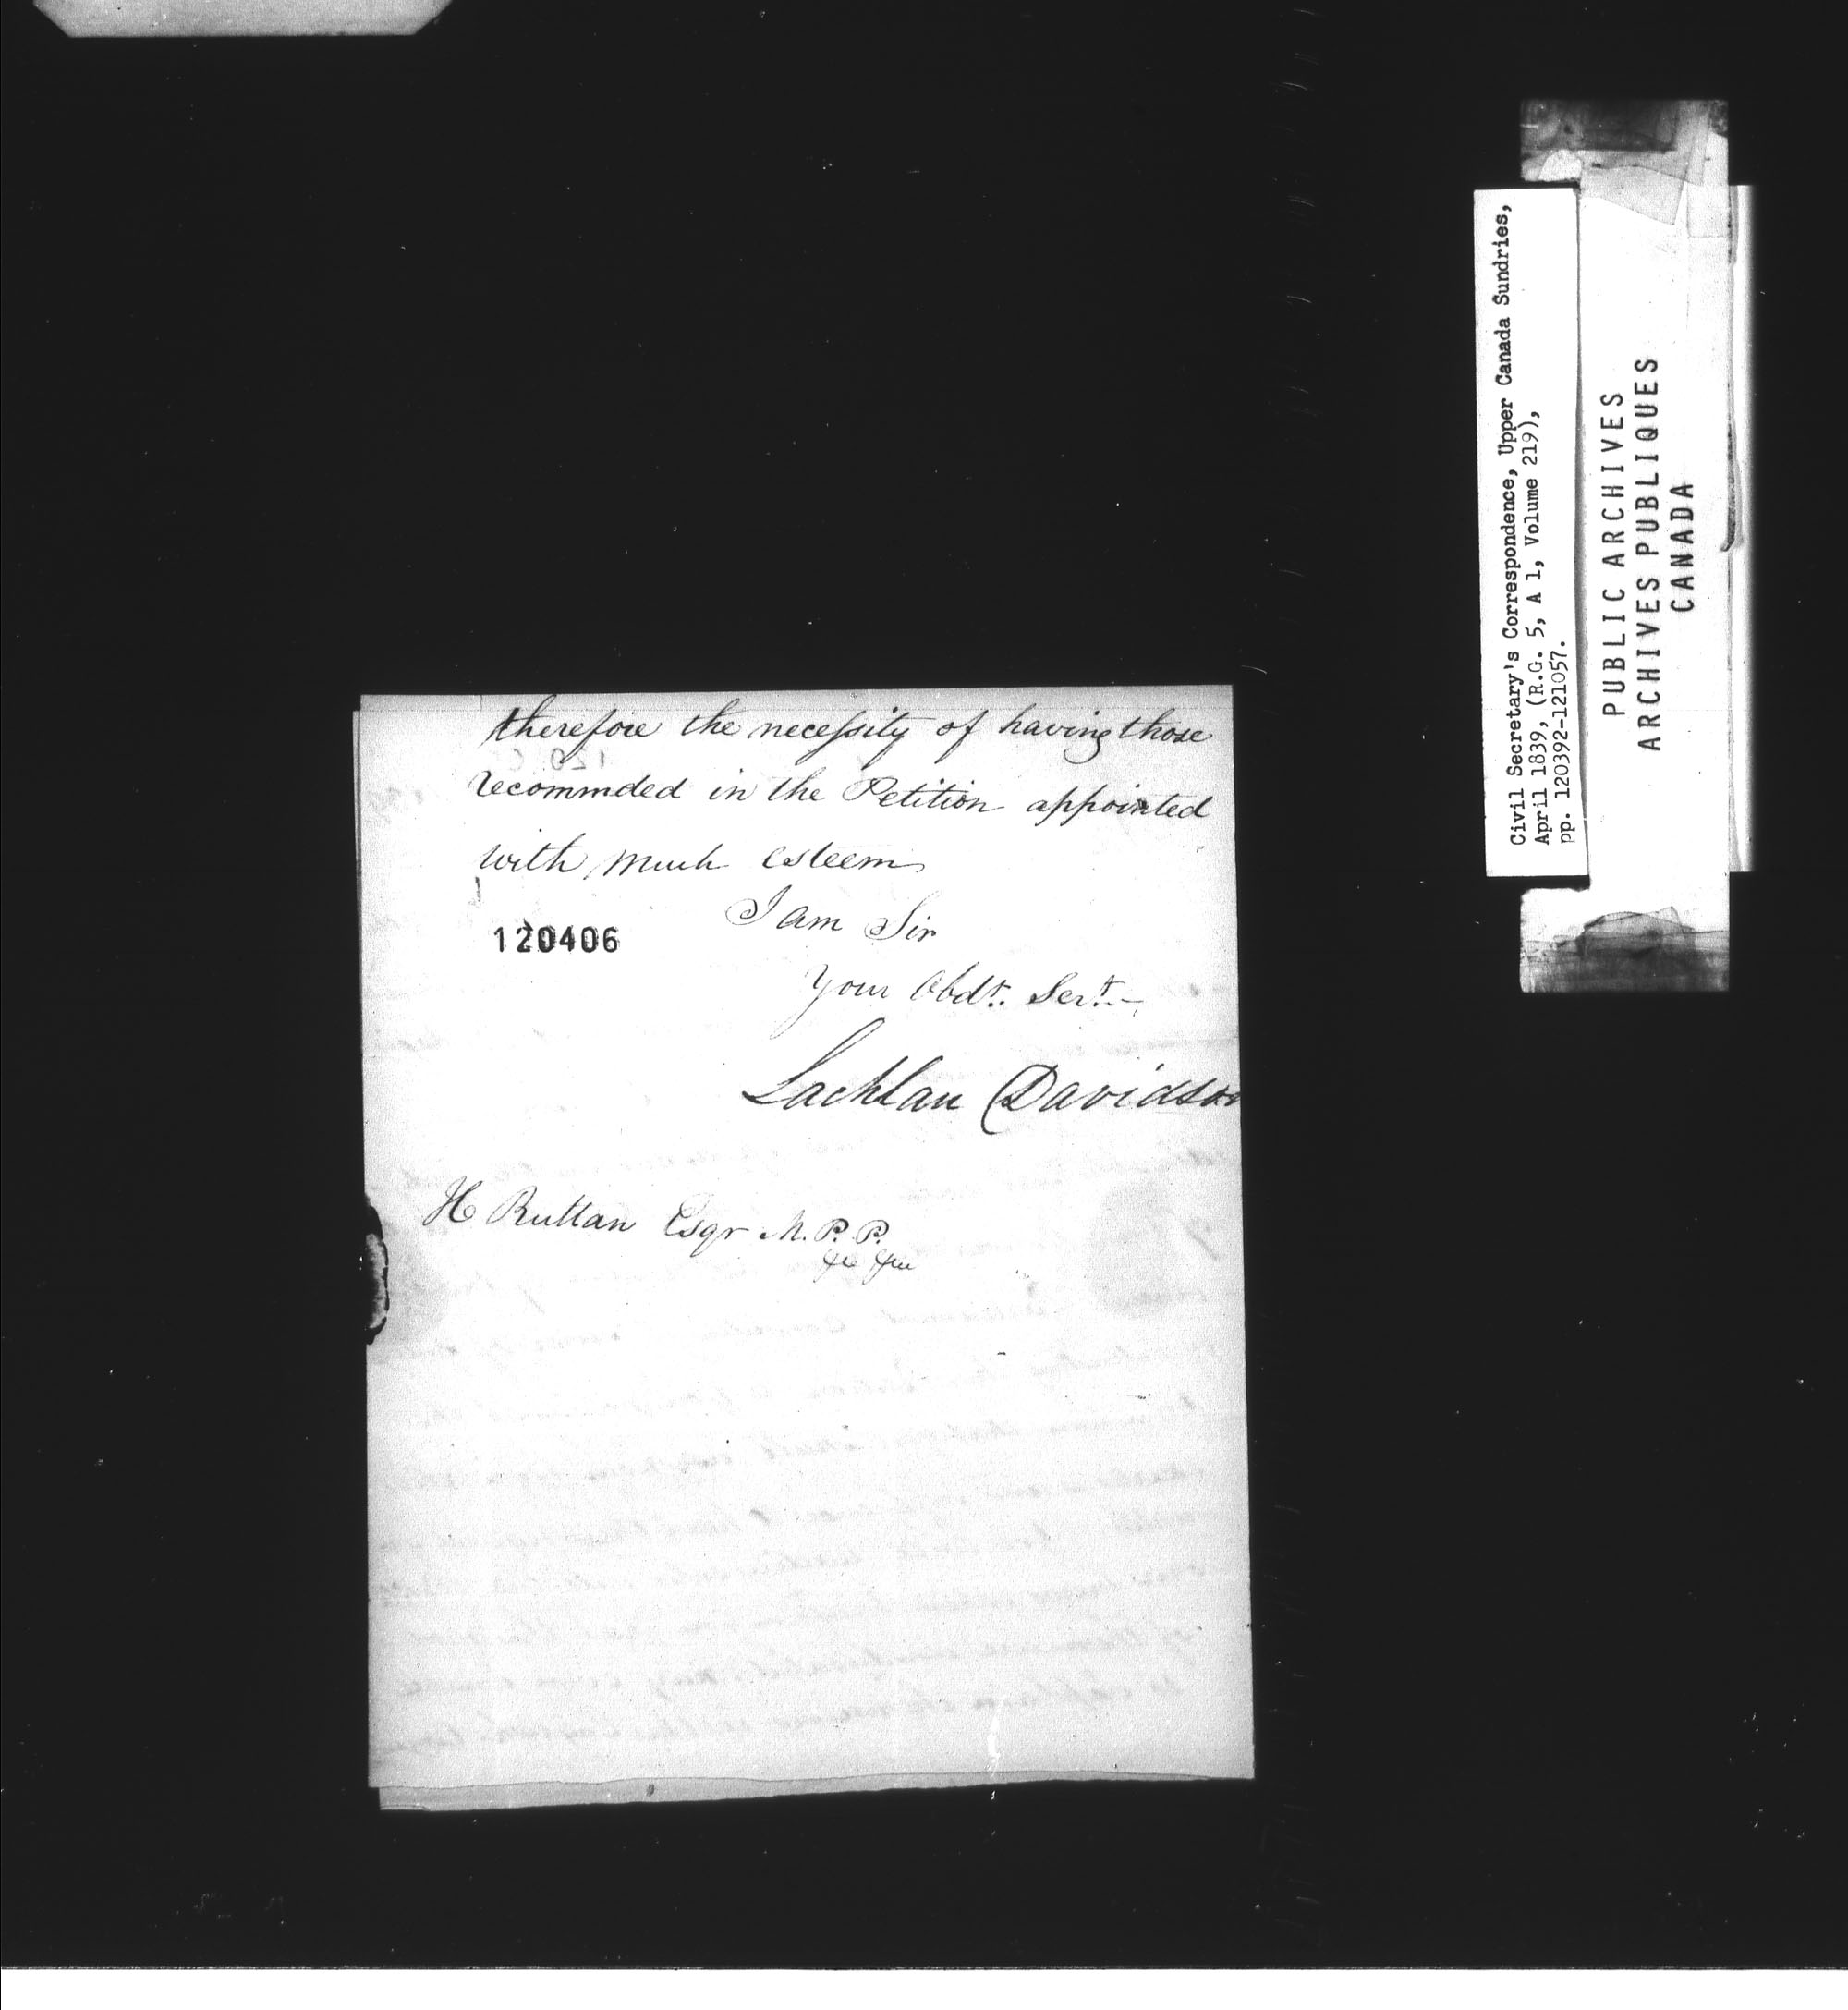 therefore the necessity of having those
recommded in the Petition appointed
with much esteem
I am Sir
120406
Your Obdt. Sert.
Lachlan Davidson
H Ruttan Esqr M.P.P.
&c &c
Civil Secretary's Correspondence, Upper Canada Sundries,
April 1839, (R.G. 5, A 1, Volume 219),
pp. 120392-121057.
PUBLIC ARCHIVES
ARCHIVES PUBLIQUES
CANADA